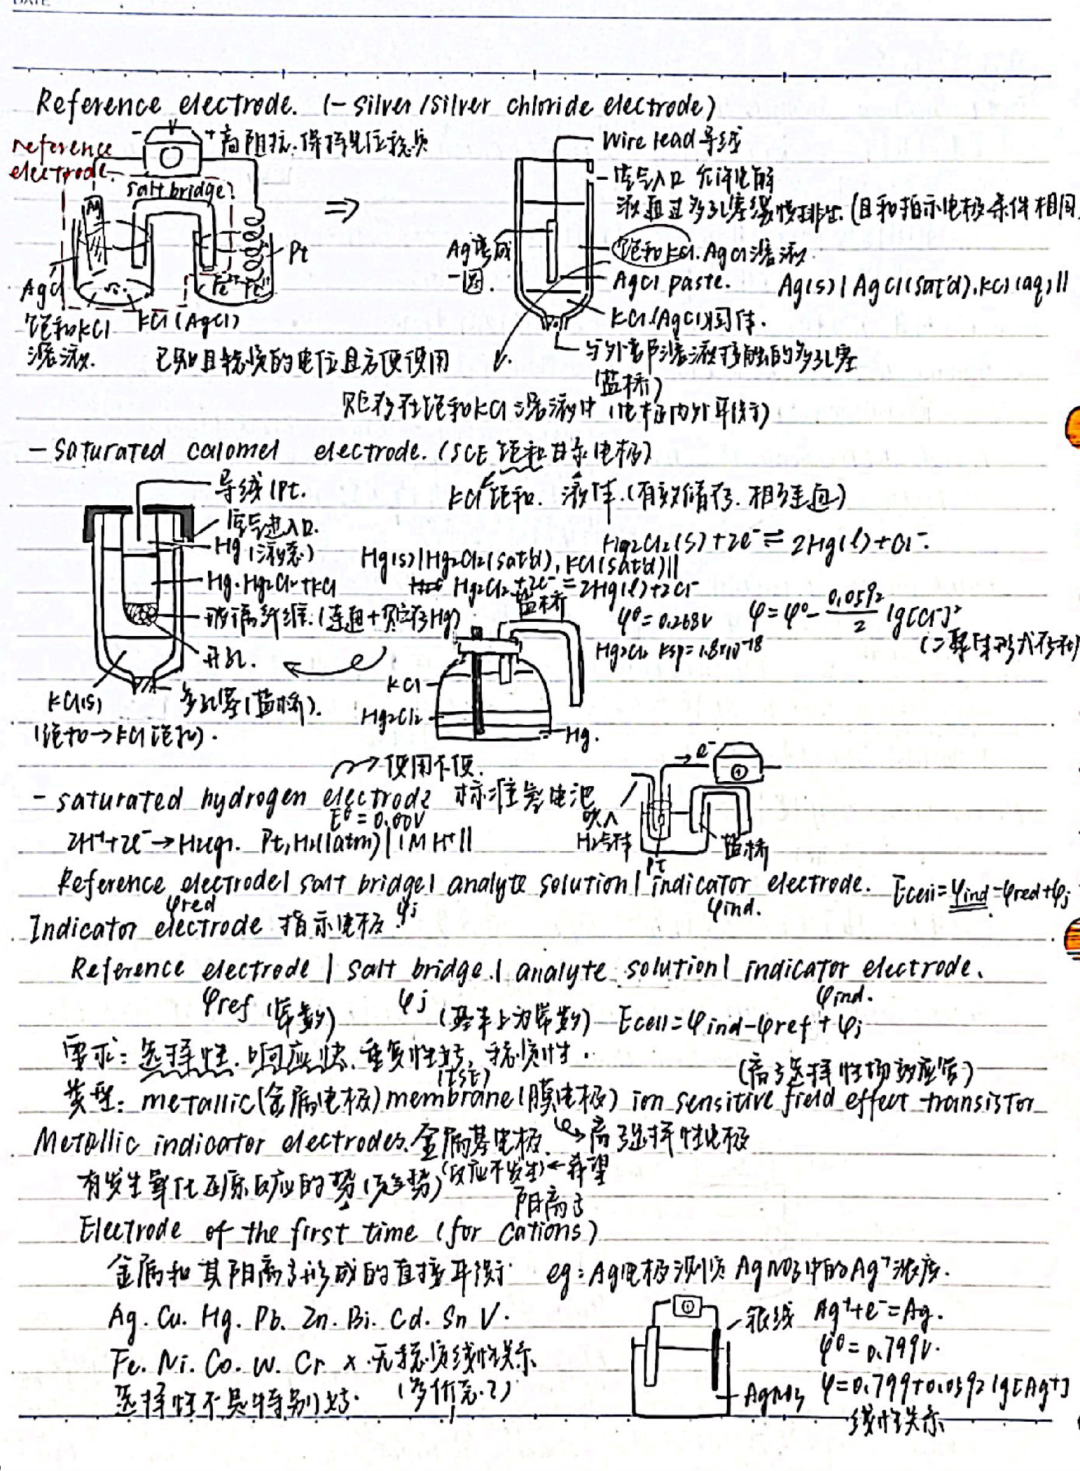 DATE
Reference electrode. (- silver/silver chloride electrode)
reference electrode
- + 高阻抗.保持电位稳定
salt bridge
Ag
Pt
AgCl
饱和KCl溶液.
KCl(AgCl)
已知且稳定的电位且方便使用
Wire lead 导线
空气入口 允许电解
液通过多孔塞缓慢排出.(且和指示电极条件相同
Ag
一圈.
饱和KCl.AgCl溶液.
AgCl paste.
Ag(s)|AgCl(sat'd),KCl(aq)||
KCl(AgCl)固体.
与外部溶液接触的多孔塞
(盐桥)
贮存在饱和KCl溶液中(电极内外平衡)
- saturated calomel electrode.(SCE 饱和甘汞电极)
KCl饱和. 液体.(有效储存.相互连通)
导线(Pt.
空气进入口.
Hg(液态)
Hg.Hg2Cl2+KCl
玻璃纤维.(连通+贮存Hg)
开孔.
KCl(s)
(饱和→KCl饱和).
多孔塞(盐桥).
Hg2Cl2(s)+2e⁻⇌2Hg(l)+Cl⁻.
Hg(s)|Hg2Cl2(sat'd),KCl(sat'd)||
Hg2Cl2+2e⁻=2Hg(l)+2Cl⁻
盐桥
φ⁰=0.268V φ=φ⁰-0.0592/2 lg[Cl⁻]²
Hg2Cl2 Ksp=1.8×10⁻¹⁸
KCl
Hg2Cl2
Hg.
使用不便.
- saturated hydrogen electrode 标准氢电池
E⁰=0.00V
2H⁺+2e⁻→H2(g). Pt,H2(1atm)|1M H⁺||
e⁻
吹入
H2气体
Pt
盐桥
Reference electrode| salt bridge| analyte solution| indicator electrode. Ecell=φind-φred+φj
φred φj φind.
Indicator electrode 指示电极
Reference electrode | salt bridge.| analyte solution| indicator electrode.
φref (常数) φj (基本上为常数) φind. Ecell=φind-φref+φj
要求:选择性.响应快.重复性好,稳定性.
(离子选择性场效应管)
类型: metallic(金属电极) membrane(膜电极) ion sensitive field effect transistor
Metallic indicator electrodes.金属基电极. ↳离子选择性电极
有发生氧化还原反应的势(趋势)(反应不发生)←希望
阳离子
Electrode of the first time (for cations)
金属和其阳离子形成的直接平衡. eg:Ag电极测定AgNO3中的Ag⁺浓度.
Ag. Cu. Hg. Pb. Zn. Bi. Cd. Sn V.
银线 Ag⁺+e⁻=Ag.
φ⁰=0.799V.
Fe. Ni. Co. W. Cr × .无稳定线性关系
选择性不是特别好. (多价态?)
AgNO3 φ=0.799+0.0592 lg[Ag⁺]
线性关系